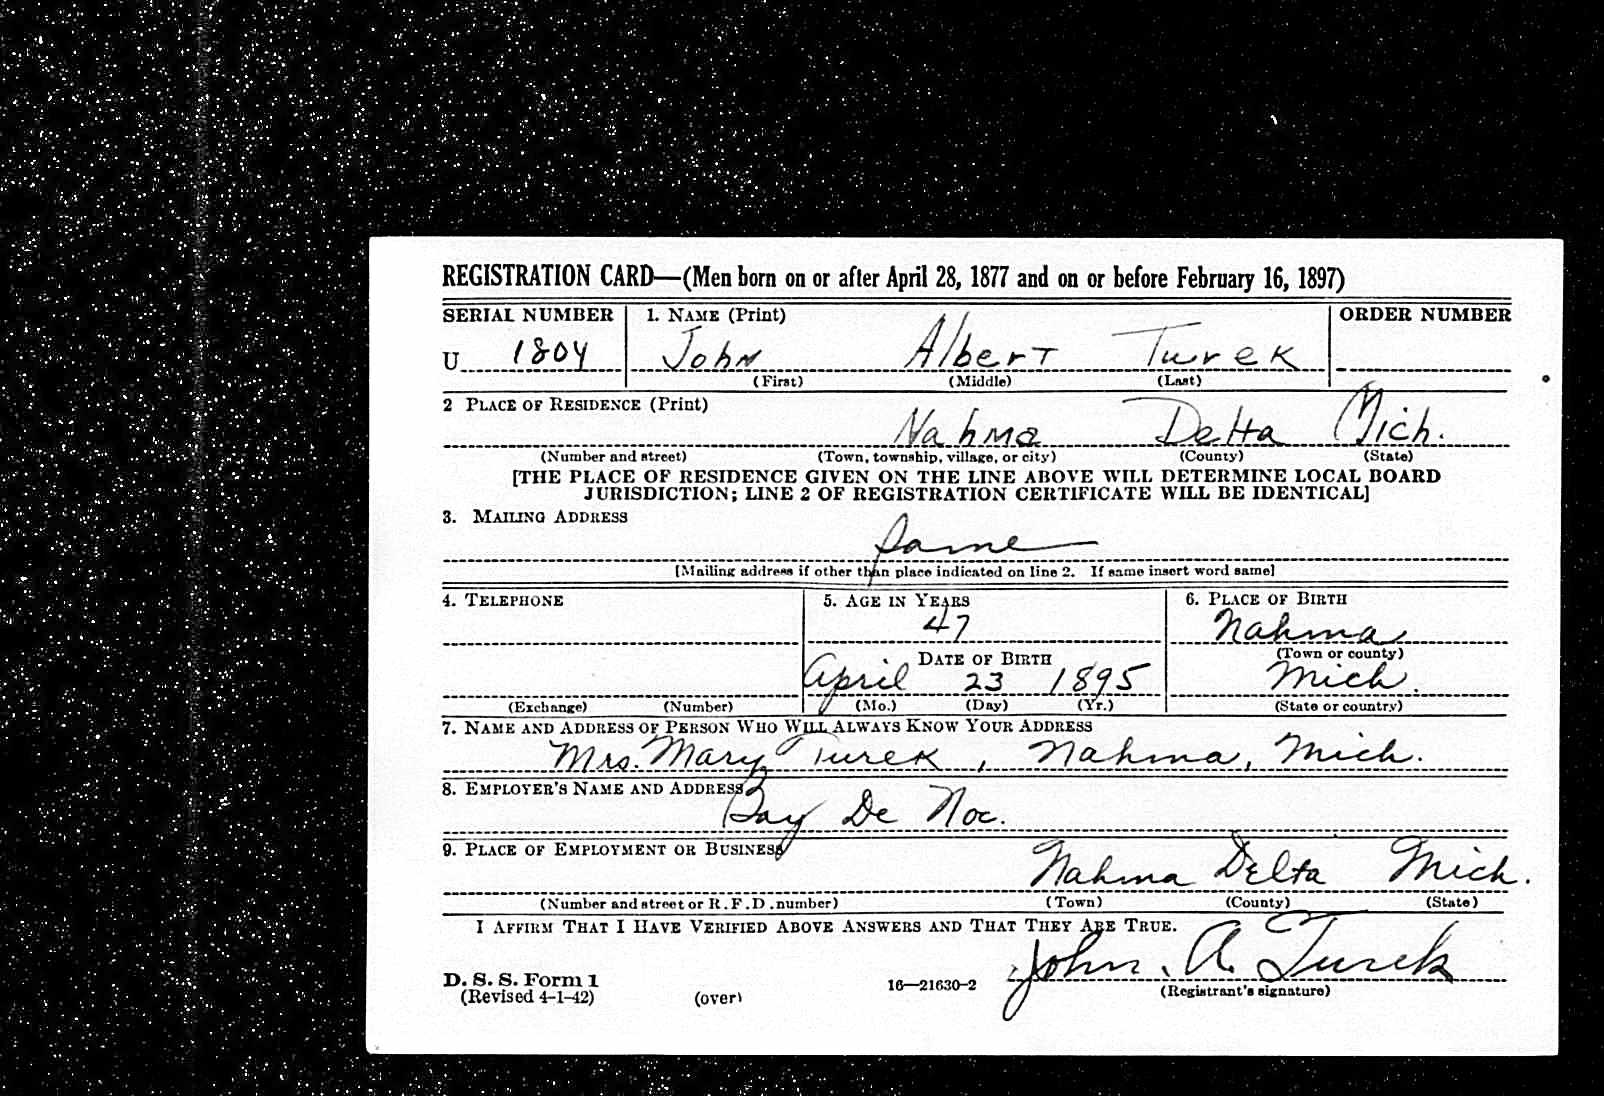 REGISTRATION CARD—(Men born on or after April 28, 1877 and on or before February 16, 1897)
SERIAL NUMBER 1. NAME (Print) ORDER NUMBER
U 1804 John Albert Turek
(First) (Middle) (Last)
2 PLACE OF RESIDENCE (Print)
Nahma Delta Mich.
(Number and street) (Town, township, village, or city) (County) (State)
[THE PLACE OF RESIDENCE GIVEN ON THE LINE ABOVE WILL DETERMINE LOCAL BOARD
JURISDICTION; LINE 2 OF REGISTRATION CERTIFICATE WILL BE IDENTICAL]
3. MAILING ADDRESS
Same
[Mailing address if other than place indicated on line 2. If same insert word same]
4. TELEPHONE 5. AGE IN YEARS 6. PLACE OF BIRTH
47 Nahma
DATE OF BIRTH (Town or county)
April 23 1895 Mich.
(Exchange) (Number) (Mo.) (Day) (Yr.) (State or country)
7. NAME AND ADDRESS OF PERSON WHO WILL ALWAYS KNOW YOUR ADDRESS
Mrs. Mary Turek, Nahma, Mich.
8. EMPLOYER'S NAME AND ADDRESS
Bay De Noc.
9. PLACE OF EMPLOYMENT OR BUSINESS
Nahma Delta Mich.
(Number and street or R.F.D. number) (Town) (County) (State)
I AFFIRM THAT I HAVE VERIFIED ABOVE ANSWERS AND THAT THEY ARE TRUE.
John. A. Turek
D. S. S. Form 1
(Revised 4-1-42) (over) 16—21630-2 (Registrant's signature)